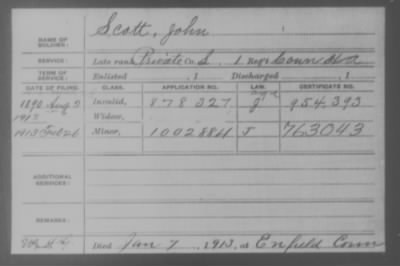 NAME OF SOLDIER: Scott, John
SERVICE: Late rank, Private Co. L, 1 Reg't Conn H A
TERM OF SERVICE: Enlisted , 1 Discharged , 1
DATE OF FILING. CLASS. APPLICATION NO. LAW. CERTIFICATE NO.
1890 Aug 2 Invalid, 878 327 954,393
1913 Widow,
1913 Feb 26 Minor, 1002884 J 763043
ADDITIONAL SERVICES:
REMARKS:
Died Jan 7, 1913, at Enfield Conn